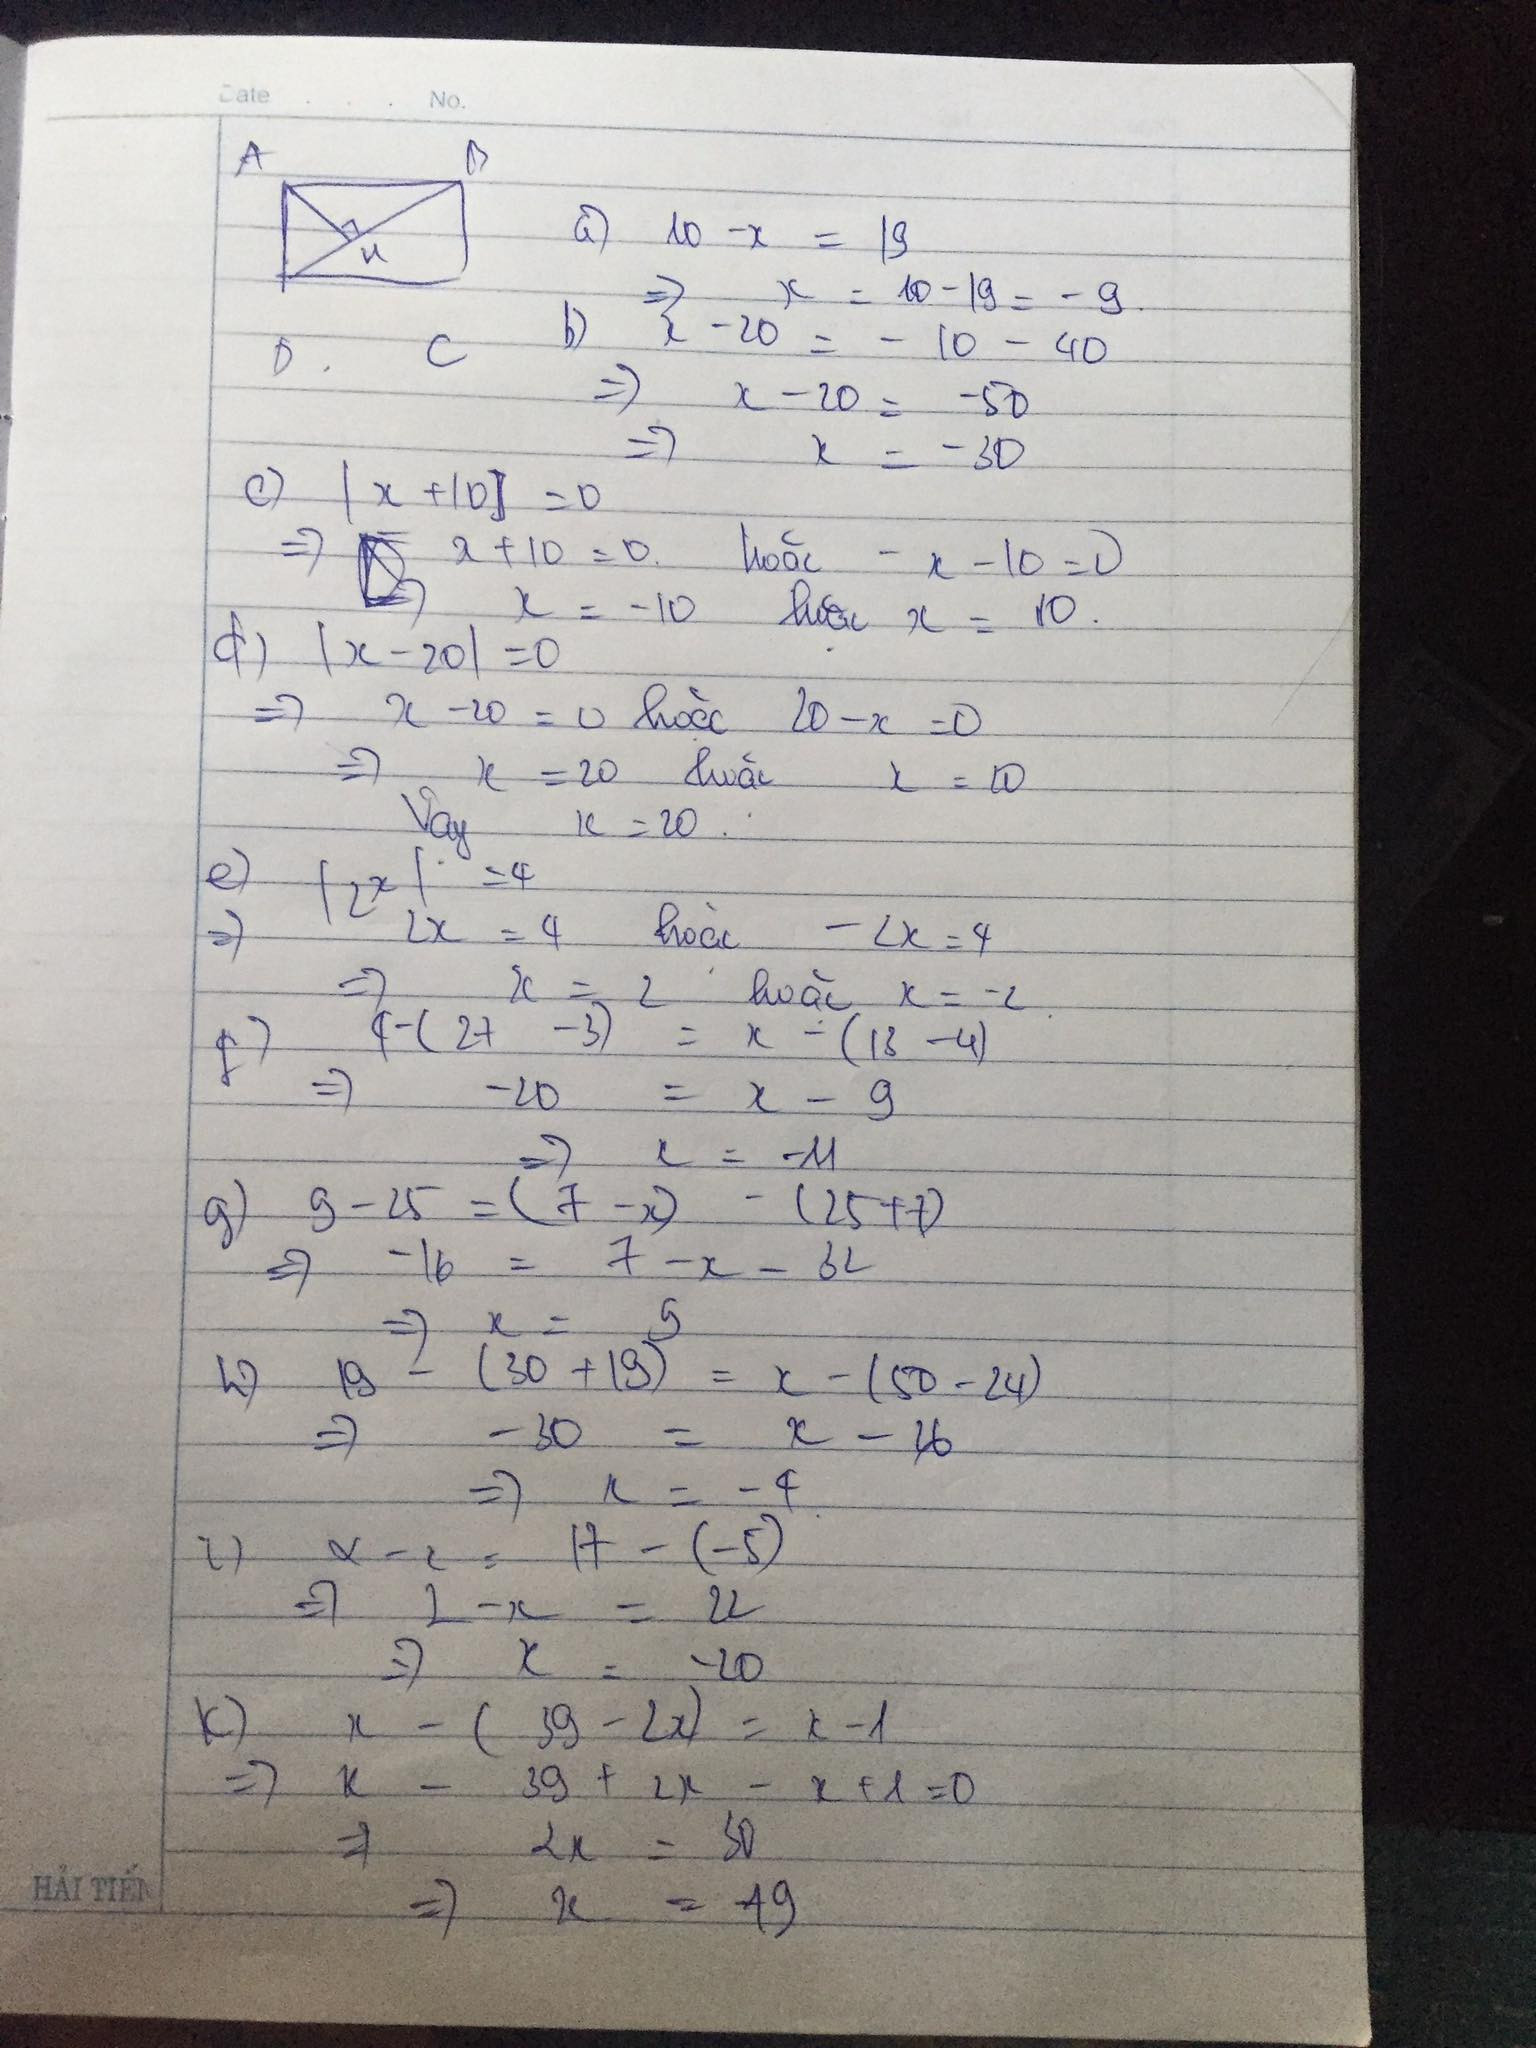 Date . . . No.
A B
H
D. C
a) 10 - x = 19
=> x = 10 - 19 = - 9.
b) x - 20 = - 10 - 40
=> x - 20 = -50
=> x = -30
c) |x + 10| = 0
=> x + 10 = 0. hoặc - x - 10 = 0
=> x = -10 hoặc x = 10.
d) |x - 20| = 0
=> x - 20 = 0 hoặc 20 - x = 0
=> x = 20 hoặc x =
Vậy x = 20.
e) |2x| = 4
=> 2x = 4 hoặc - 2x = 4
=> x = 2 hoặc x = -2.
f) 4 - (27 - 3) = x - (13 - 4)
=> -20 = x - 9
=> x = -11
g) 9 - 25 = (7 - x) - (25 + 7)
=> -16 = 7 - x - 32
=> x =
h) 19 - (30 + 19) = x - (50 - 24)
=> -30 = x - 26
=> x = -4.
i) - = 17 - (-5)
=> 2 - x = 22
=> x = -20
k) x - (39 - 2x) = x - 1
=> x - 39 + 2x - x + 1 = 0
=> 2x =
=> x = 19
HẢI TIẾN